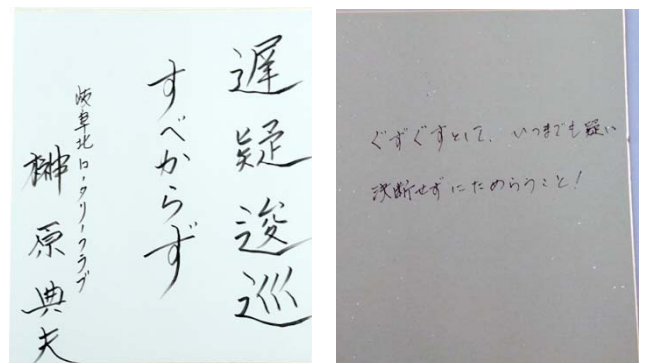 遅疑逡巡
すべからず
岐阜北ロータリークラブ
榊原典夫
ぐずぐずとして、いつまでも疑い
決断せずにためらうこと!